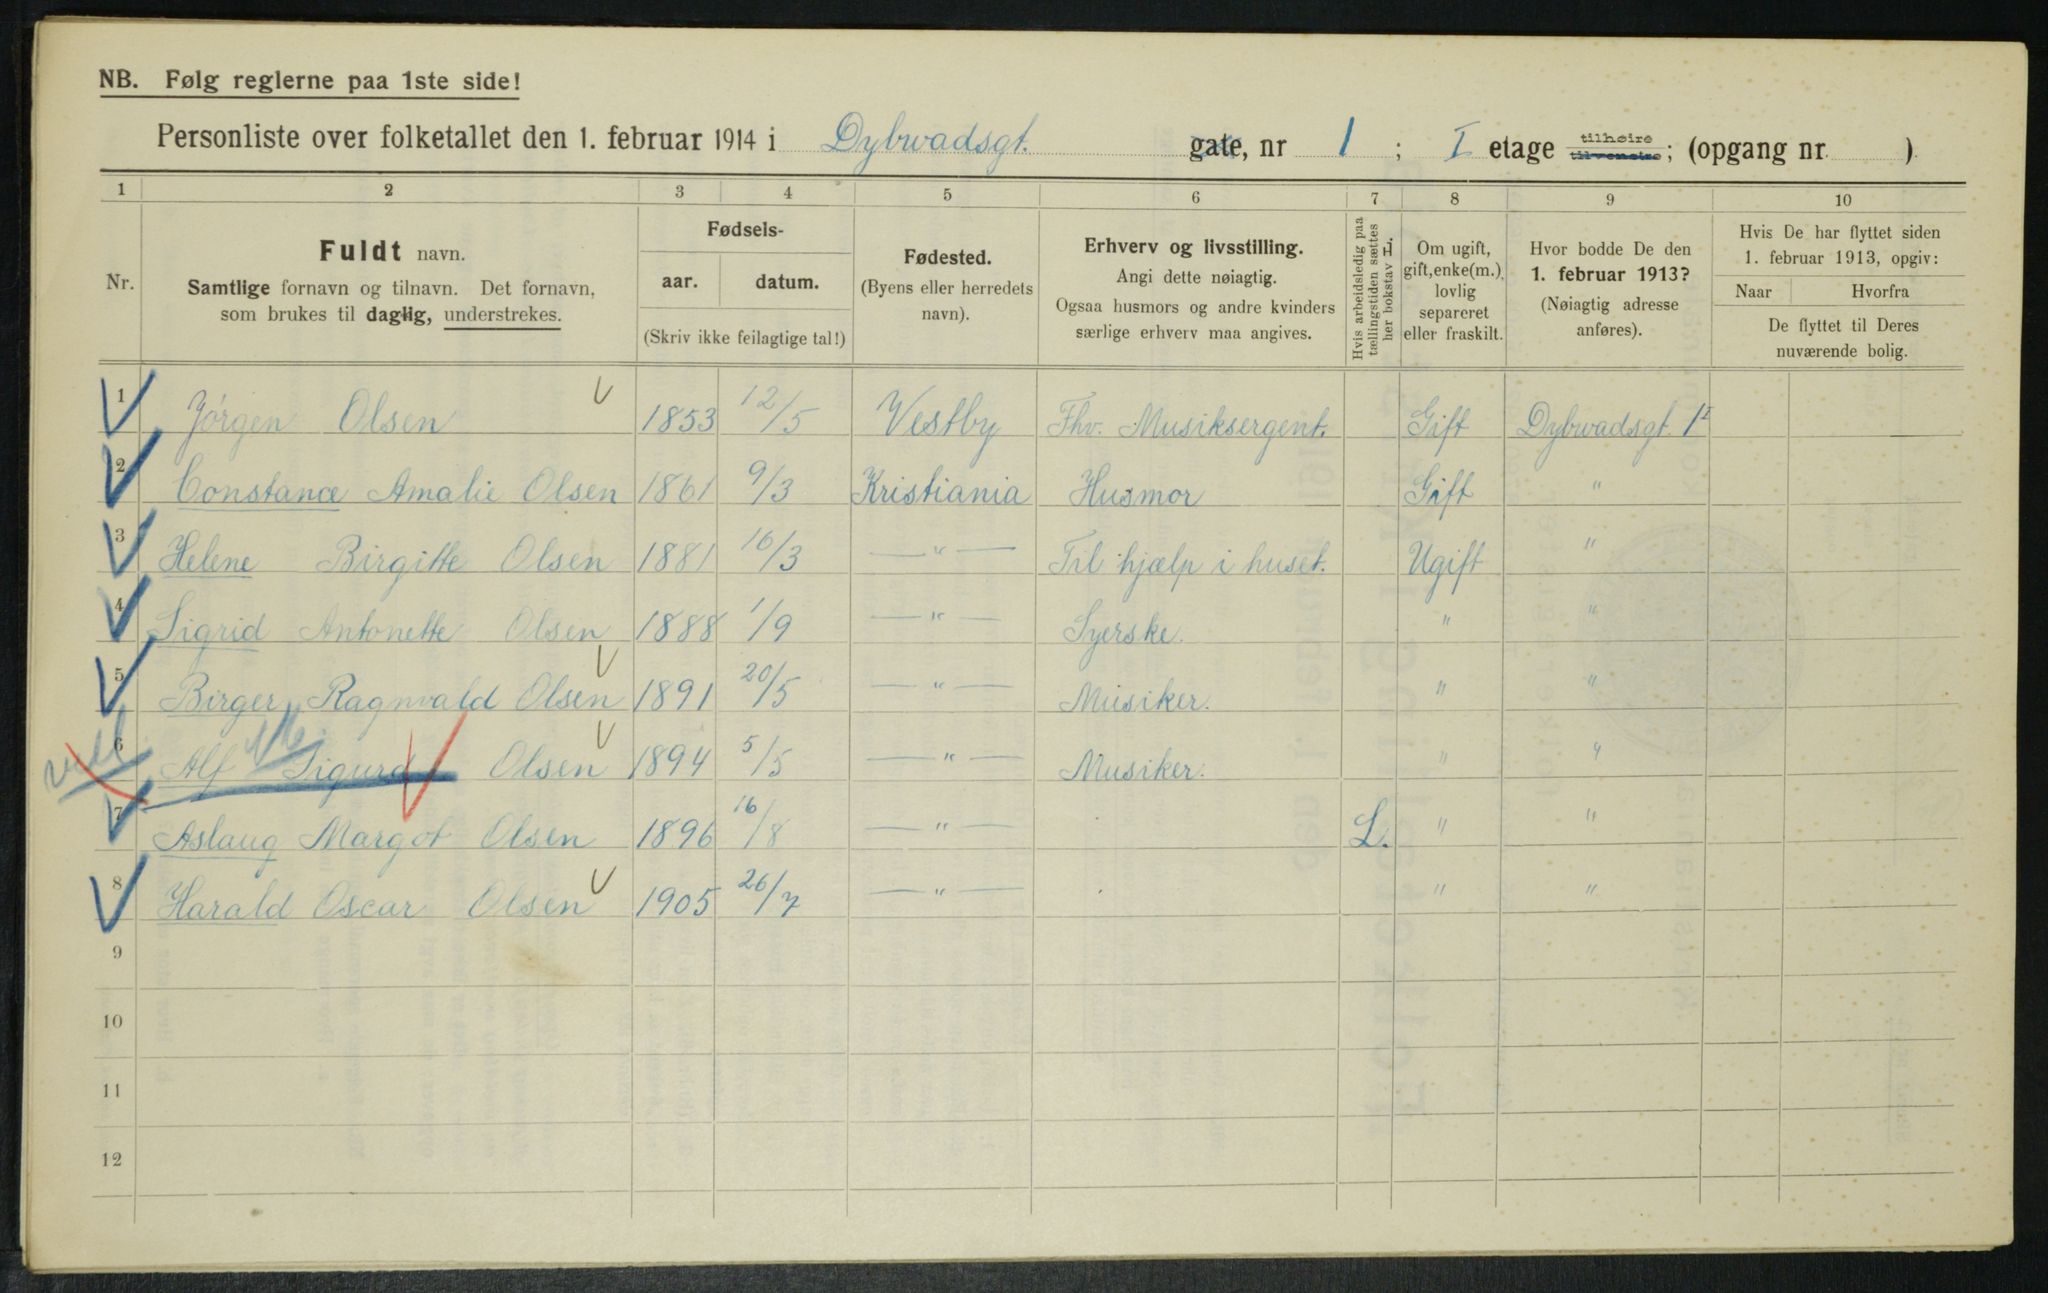 NB. Følg reglerne paa 1ste side!
Personliste over folketallet den 1. februar 1914 i Dybwadsgt. gate, nr 1 ; I etage tilhøire tilvenstre; (opgang nr. )
1 2 3 4 5 6 7 8 9 10
Nr.
Fuldt navn.
Samtlige fornavn og tilnavn. Det fornavn,
som brukes til daglig, understrekes.
Fødsels-
aar. datum.
(Skriv ikke feilagtige tal!)
Fødested.
(Byens eller herredets
navn).
Erhverv og livsstilling.
Angi dette nøiagtig.
Ogsaa husmors og andre kvinders
særlige erhverv maa angives.
Hvis arbeidsledig paa
tællingstiden sættes
her bokstav L.
Om ugift,
gift, enke(m.),
lovlig
separeret
eller fraskilt.
Hvor bodde De den
1. februar 1913?
(Nøiagtig adresse
anføres).
Hvis De har flyttet siden
1. februar 1913, opgiv:
Naar Hvorfra
De flyttet til Deres
nuværende bolig.
1 Jörgen Olsen 1853 12/5 Vestby Fhv. Musiksergent. Gift Dybwadsgt. 1 I
2 Constance Amalie Olsen 1861 9/3 Kristiania Husmor Gift "
3 Helene Birgitte Olsen 1881 16/3 — " — Til hjælp i huset. Ugift "
4 Sigrid Antonette Olsen 1888 1/9 — " — Syerske. " "
5 Birger Ragnvald Olsen 1891 20/5 — " — Musiker. " "
6 Alf Sigurd Olsen 1894 5/5 — " — Musiker. " "
7 Aslaug Margot Olsen 1896 16/8 — " — L. " "
8 Harald Oscar Olsen 1905 26/7 — " — " "
9
10
11
12